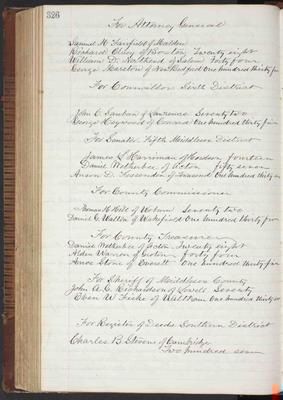 326
For Attorney General
Samuel H. Fairfield of Malden
Richard Olney of Boston, Twenty eight
William D. Northend of Salem Forty four
George Marston of New Bedford One hundred thirty
For Councillor Sixth District
John C. Sanborn of Lawrence Seventy two
George Heywood of Concord One hundred thirty
For Senator, Fifth Middlesex District
James S. Harriman of Hudson, fourteen
Daniel Wetherbee of Acton fifty seven
Anson D. Fessenden of Townsend One hundred thirty
For County Commissioner
Thomas H. Hill of Woburn Seventy two
Daniel G. Walton of Wakefield One hundred thirty
For County Treasurer
Daniel Wetherbee of Acton Twenty eight
Alden Warren of Groton forty four
Amos Stone of Everett One hundred thirty
For Sheriff of Middlesex County
John A. G. Richardson of Lowell Seventy
Eben W. Fiske of Waltham One hundred thirty
For Register of Deeds Southern District
Charles B. Stevens of Cambridge
Two hundred seven